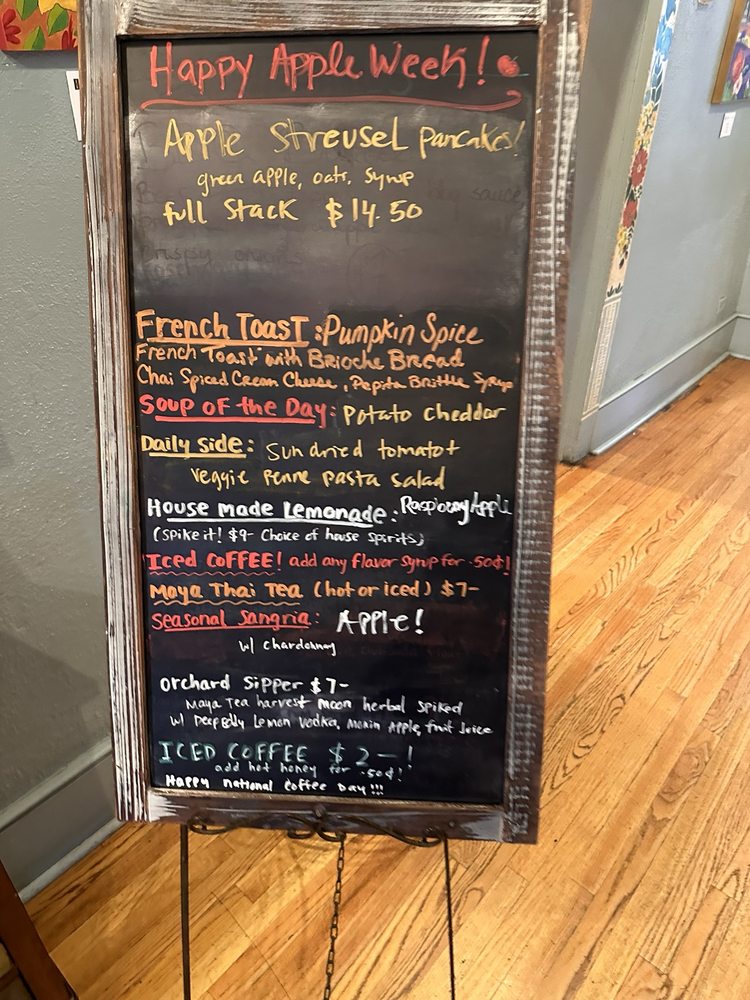 Happy Apple Week!
Apple Streusel pancakes!
green apple, oats, syrup
full stack $14.50
French Toast: Pumpkin Spice
French Toast with Brioche Bread
Chai Spiced Cream Cheese, Pepita Brittle Syrup
Soup of the Day: Potato cheddar
Daily side: Sun dried tomato +
veggie penne pasta salad
House made Lemonade: Raspberry Apple
(Spike it! $9- Choice of house spirits)
Iced Coffee! add any flavor syrup for .50¢!
Maya Thai Tea (hot or iced) $7-
Seasonal Sangria: Apple!
w/ chardonnay
Orchard Sipper $7-
Maya Tea harvest moon herbal spiked
w/ Deep Eddy Lemon Vodka, Monin Apple, fruit Juice
ICED COFFEE $2-!
add hot honey for .50¢!
Happy national coffee Day!!!